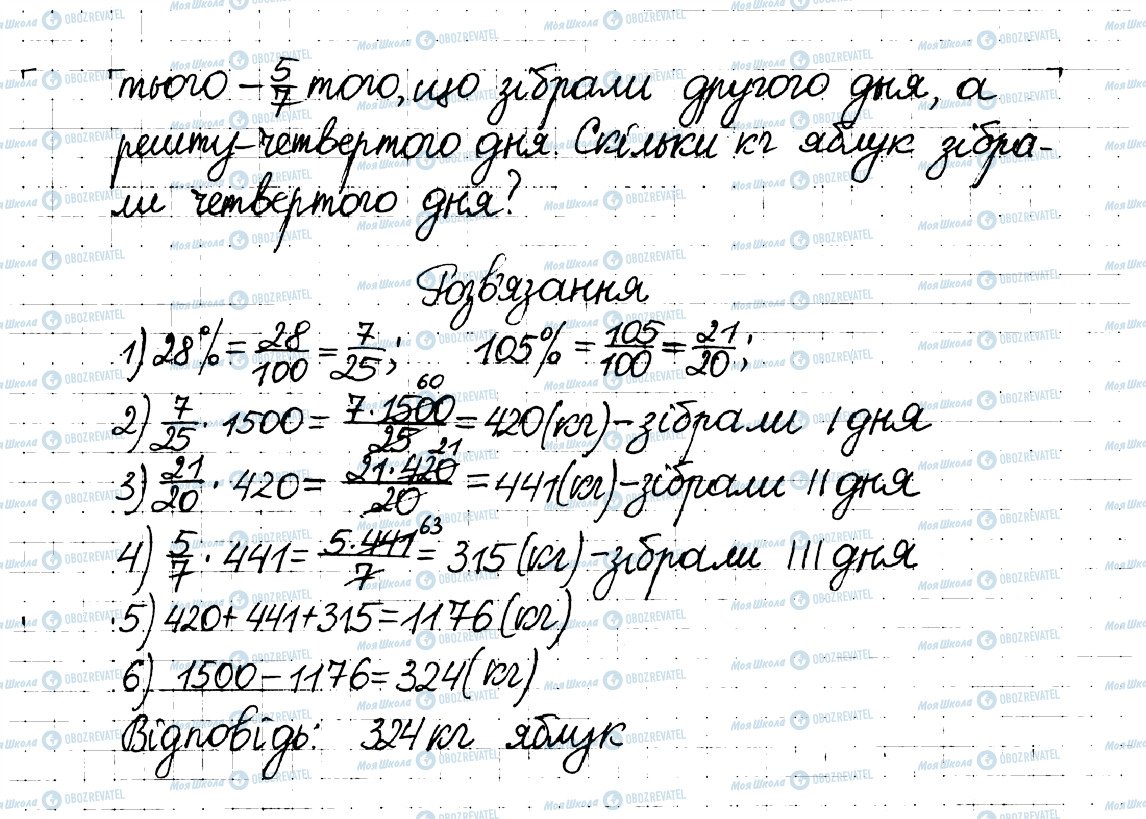 тього – 5/7 того, що зібрали другого дня, а
решту-четвертого дня. Скільки кг яблук зібра-
ли четвертого дня?
Розв'язання
1) 28% = 28/100 = 7/25; 105% = 105/100 = 21/20;
2) 7/25 · 1500 = 7·1500/25 60 = 420 (кг) – зібрали I дня
3) 21/20 · 420 = 21·420/20 21 = 441 (кг) – зібрали II дня
4) 5/7 · 441 = 5·441/7 63 = 315 (кг) – зібрали III дня
5) 420 + 441 + 315 = 1176 (кг)
6) 1500 – 1176 = 324 (кг)
Відповідь: 324 кг яблук